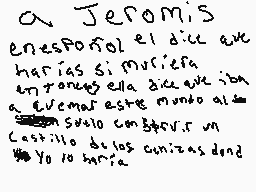 a Jeromis
en español el dice que
harias si muriera
entonces ella dice que iba
a quemar este mundo al
suelo construir un
castillo de los cenizas dond
yo lo haria